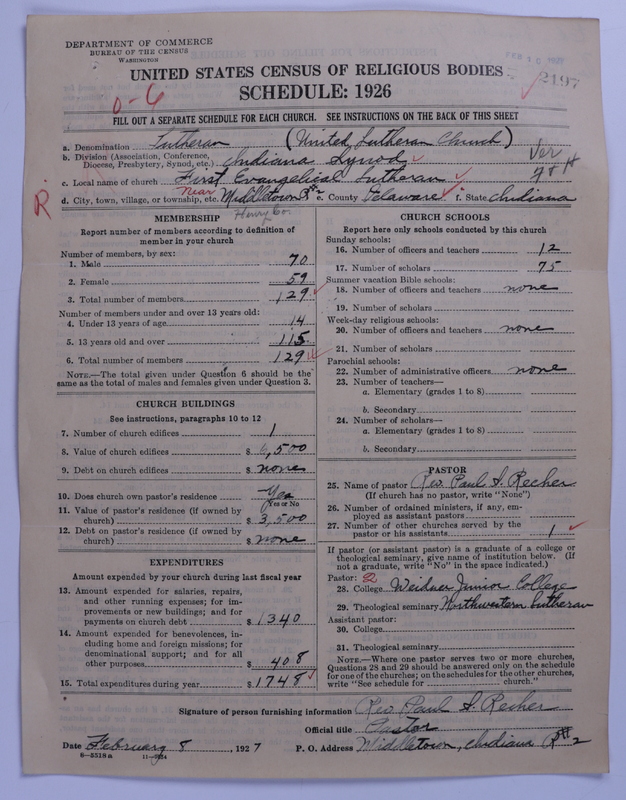 DEPARTMENT OF COMMERCE
BUREAU OF THE CENSUS
WASHINGTON
FEB 10 1927
2197
UNITED STATES CENSUS OF RELIGIOUS BODIES
SCHEDULE: 1926
0-6
FILL OUT A SEPARATE SCHEDULE FOR EACH CHURCH. SEE INSTRUCTIONS ON THE BACK OF THIS SHEET
a. Denomination Lutheran (United Lutheran Church)
b. Division (Association, Conference,
Diocese, Presbytery, Synod, etc.) Indiana Synod
Ver
c. Local name of church First Evangelical Lutheran
R
d. City, town, village, or township, etc. Near Middletown e. County Delaware f. State Indiana
Henry Co.
MEMBERSHIP
Report number of members according to definition of
member in your church
Number of members, by sex:
1. Male 70
2. Female 59
3. Total number of members 129
Number of members under and over 13 years old:
4. Under 13 years of age 14
5. 13 years old and over 115
6. Total number of members 129
NOTE.—The total given under Question 6 should be the
same as the total of males and females given under Question 3.
CHURCH BUILDINGS
See instructions, paragraphs 10 to 12
7. Number of church edifices 1
8. Value of church edifices $ ,500
9. Debt on church edifices $ none
10. Does church own pastor's residence Yes
Yes or No
11. Value of pastor's residence (if owned by
church) $ 3,500
12. Debt on pastor's residence (if owned by
church) $ none
EXPENDITURES
Amount expended by your church during last fiscal year
13. Amount expended for salaries, repairs,
and other running expenses; for im-
provements or new buildings; and for
payments on church debt $ 1340
14. Amount expended for benevolences, in-
cluding home and foreign missions; for
denominational support; and for all
other purposes $ 408
15. Total expenditures during year $ 1748
CHURCH SCHOOLS
Report here only schools conducted by this church
Sunday schools:
16. Number of officers and teachers 12
17. Number of scholars 75
Summer vacation Bible schools:
18. Number of officers and teachers none
19. Number of scholars
Week-day religious schools:
20. Number of officers and teachers none
21. Number of scholars
Parochial schools:
22. Number of administrative officers none
23. Number of teachers—
a. Elementary (grades 1 to 8)
b. Secondary
24. Number of scholars—
a. Elementary (grades 1 to 8)
b. Secondary
PASTOR
25. Name of pastor Rev. Paul I. Recher
(If church has no pastor, write "None")
26. Number of ordained ministers, if any, em-
ployed as assistant pastors
27. Number of other churches served by the
pastor or his assistants 1
If pastor (or assistant pastor) is a graduate of a college or
theological seminary, give name of institution below. (If
not a graduate, write "No" in the space indicated.)
Pastor:
28. College Weidner Junior College
29. Theological seminary Northwestern Lutheran
Assistant pastor:
30. College
31. Theological seminary
NOTE.—Where one pastor serves two or more churches,
Questions 28 and 29 should be answered only on the schedule
for one of the churches; on the schedules for the other churches,
write "See schedule for church."
Signature of person furnishing information Rev. Paul I. Recher
Official title Pastor
Date February 8, 1927 P. O. Address Middletown, Indiana R#2
6-5518a 11-9624